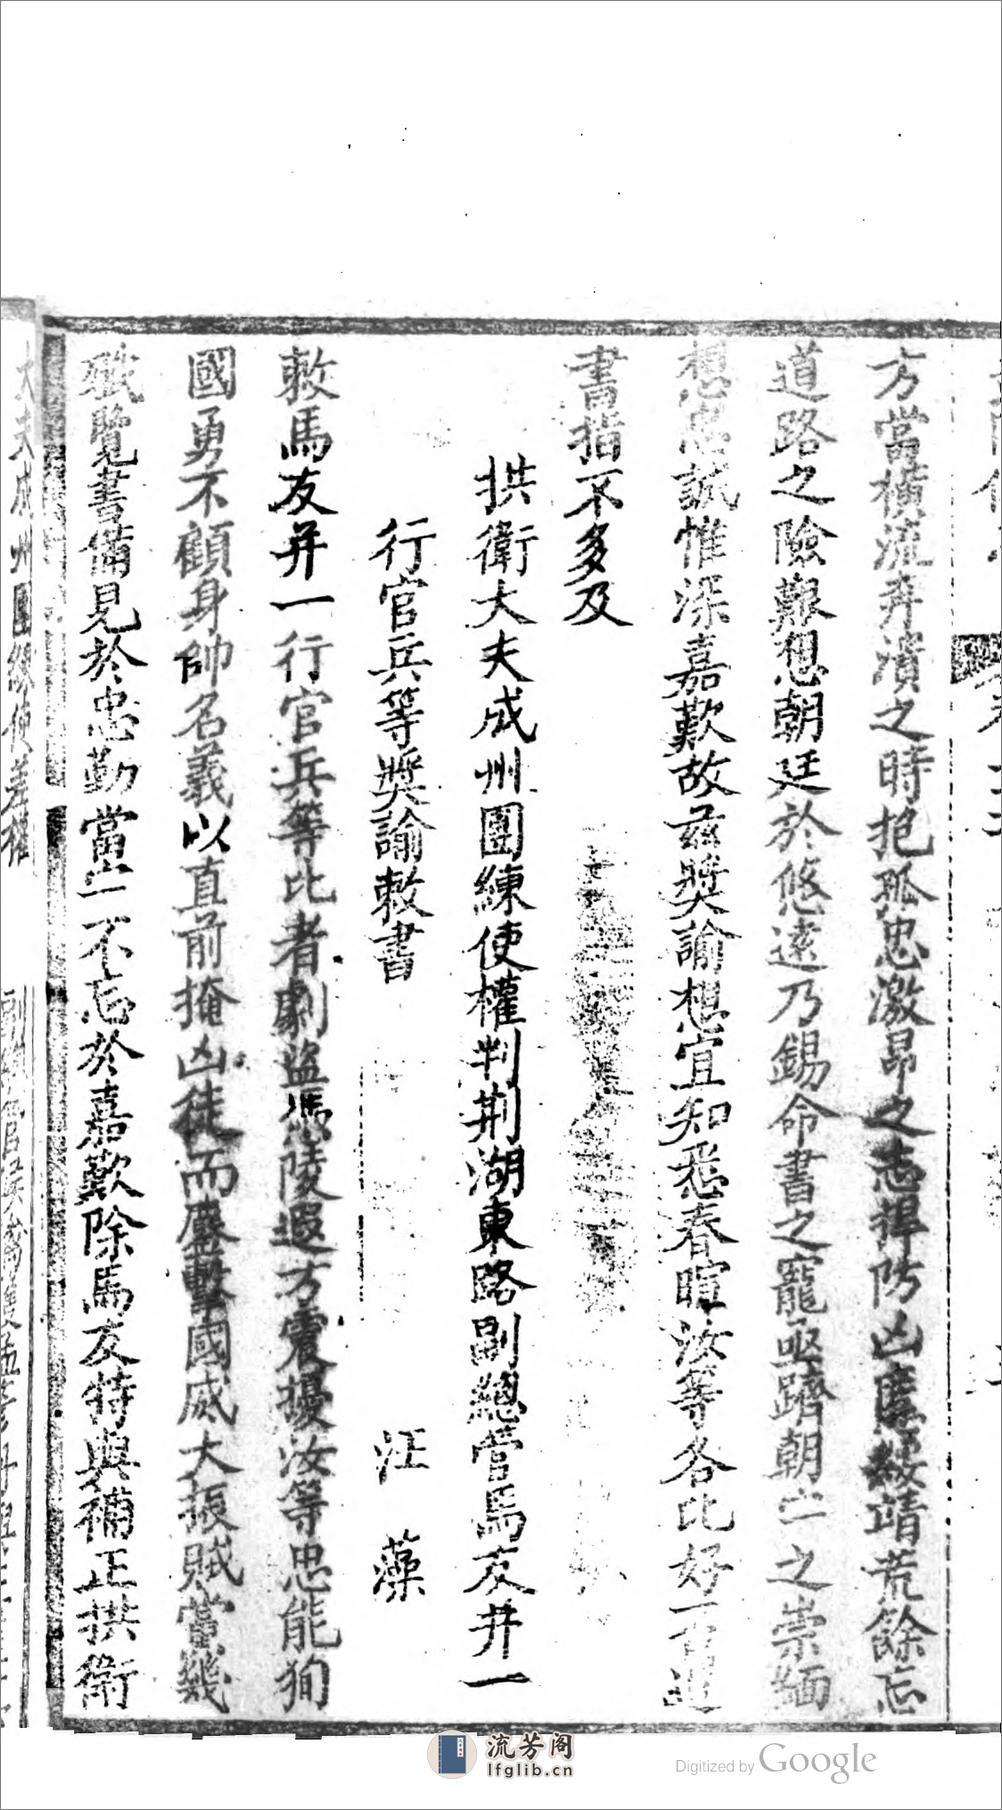 方當橫流奔潰之時抱孤忠激昂之志捍防凶靖荒餘忘
道路之險艱想朝廷於悠遠乃錫命書之寵亟躋朝亡一之崇緬
想忠誠惟深嘉歎故茲奬諭想宜知悉春暄汝等各比好
書指不多及
拱衛大夫成州團練使權判荆湖東路副總管馬友并一
行官兵等奬諭敕書
汪藻
敕馬友并一行官兵等比者劇盜馮陵遐方震擾汝等忠能狥
國勇不顧身帥名義以直前掩凶徒而鏖擊國威大振賊當幾
殲覽書備見於忠勤當亡一不忘於嘉歎除馬友特與補正拱衛
大夫成州團練使差權
流芳阁
lfglib.cn
Digitized by Google